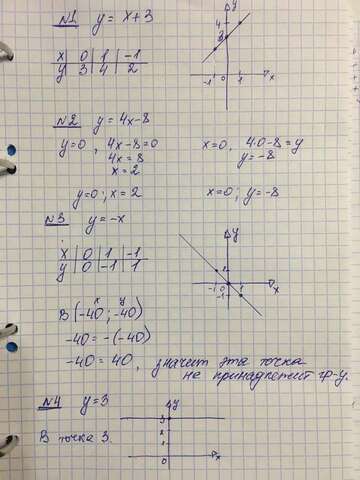 №1 y = x+3
y
x 0 1 -1
y 3 4 2
4
3
-1 0 1 x
№2 y = 4x-8
y=0, 4x-8=0 x=0, 4·0-8=y
4x=8 y=-8
x=2
y=0; x=2 x=0; y=-8
№3 y=-x
y
x 0 1 -1
y 0 -1 1
1
-1 0 1 x
-1
x y
B(-40; -40)
-40 = -(-40)
-40 = 40, значит эта точка
не принадлежит гр-у.
№4 y=3
y
3
2
1
0 x
В точка 3.